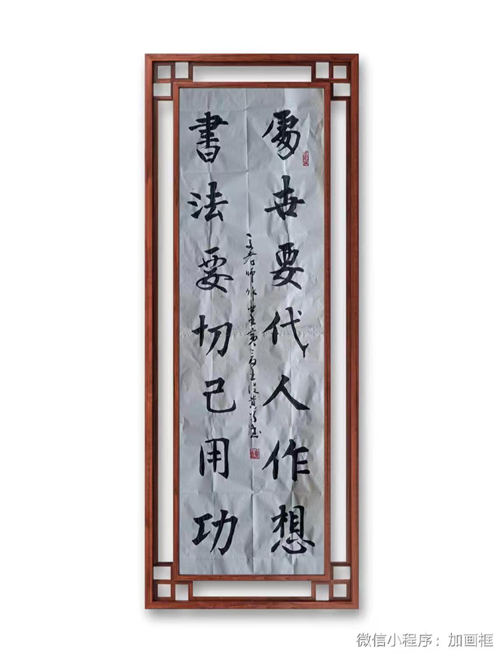 處世要代人作想
書法要切己用功
微信小程序：加画框